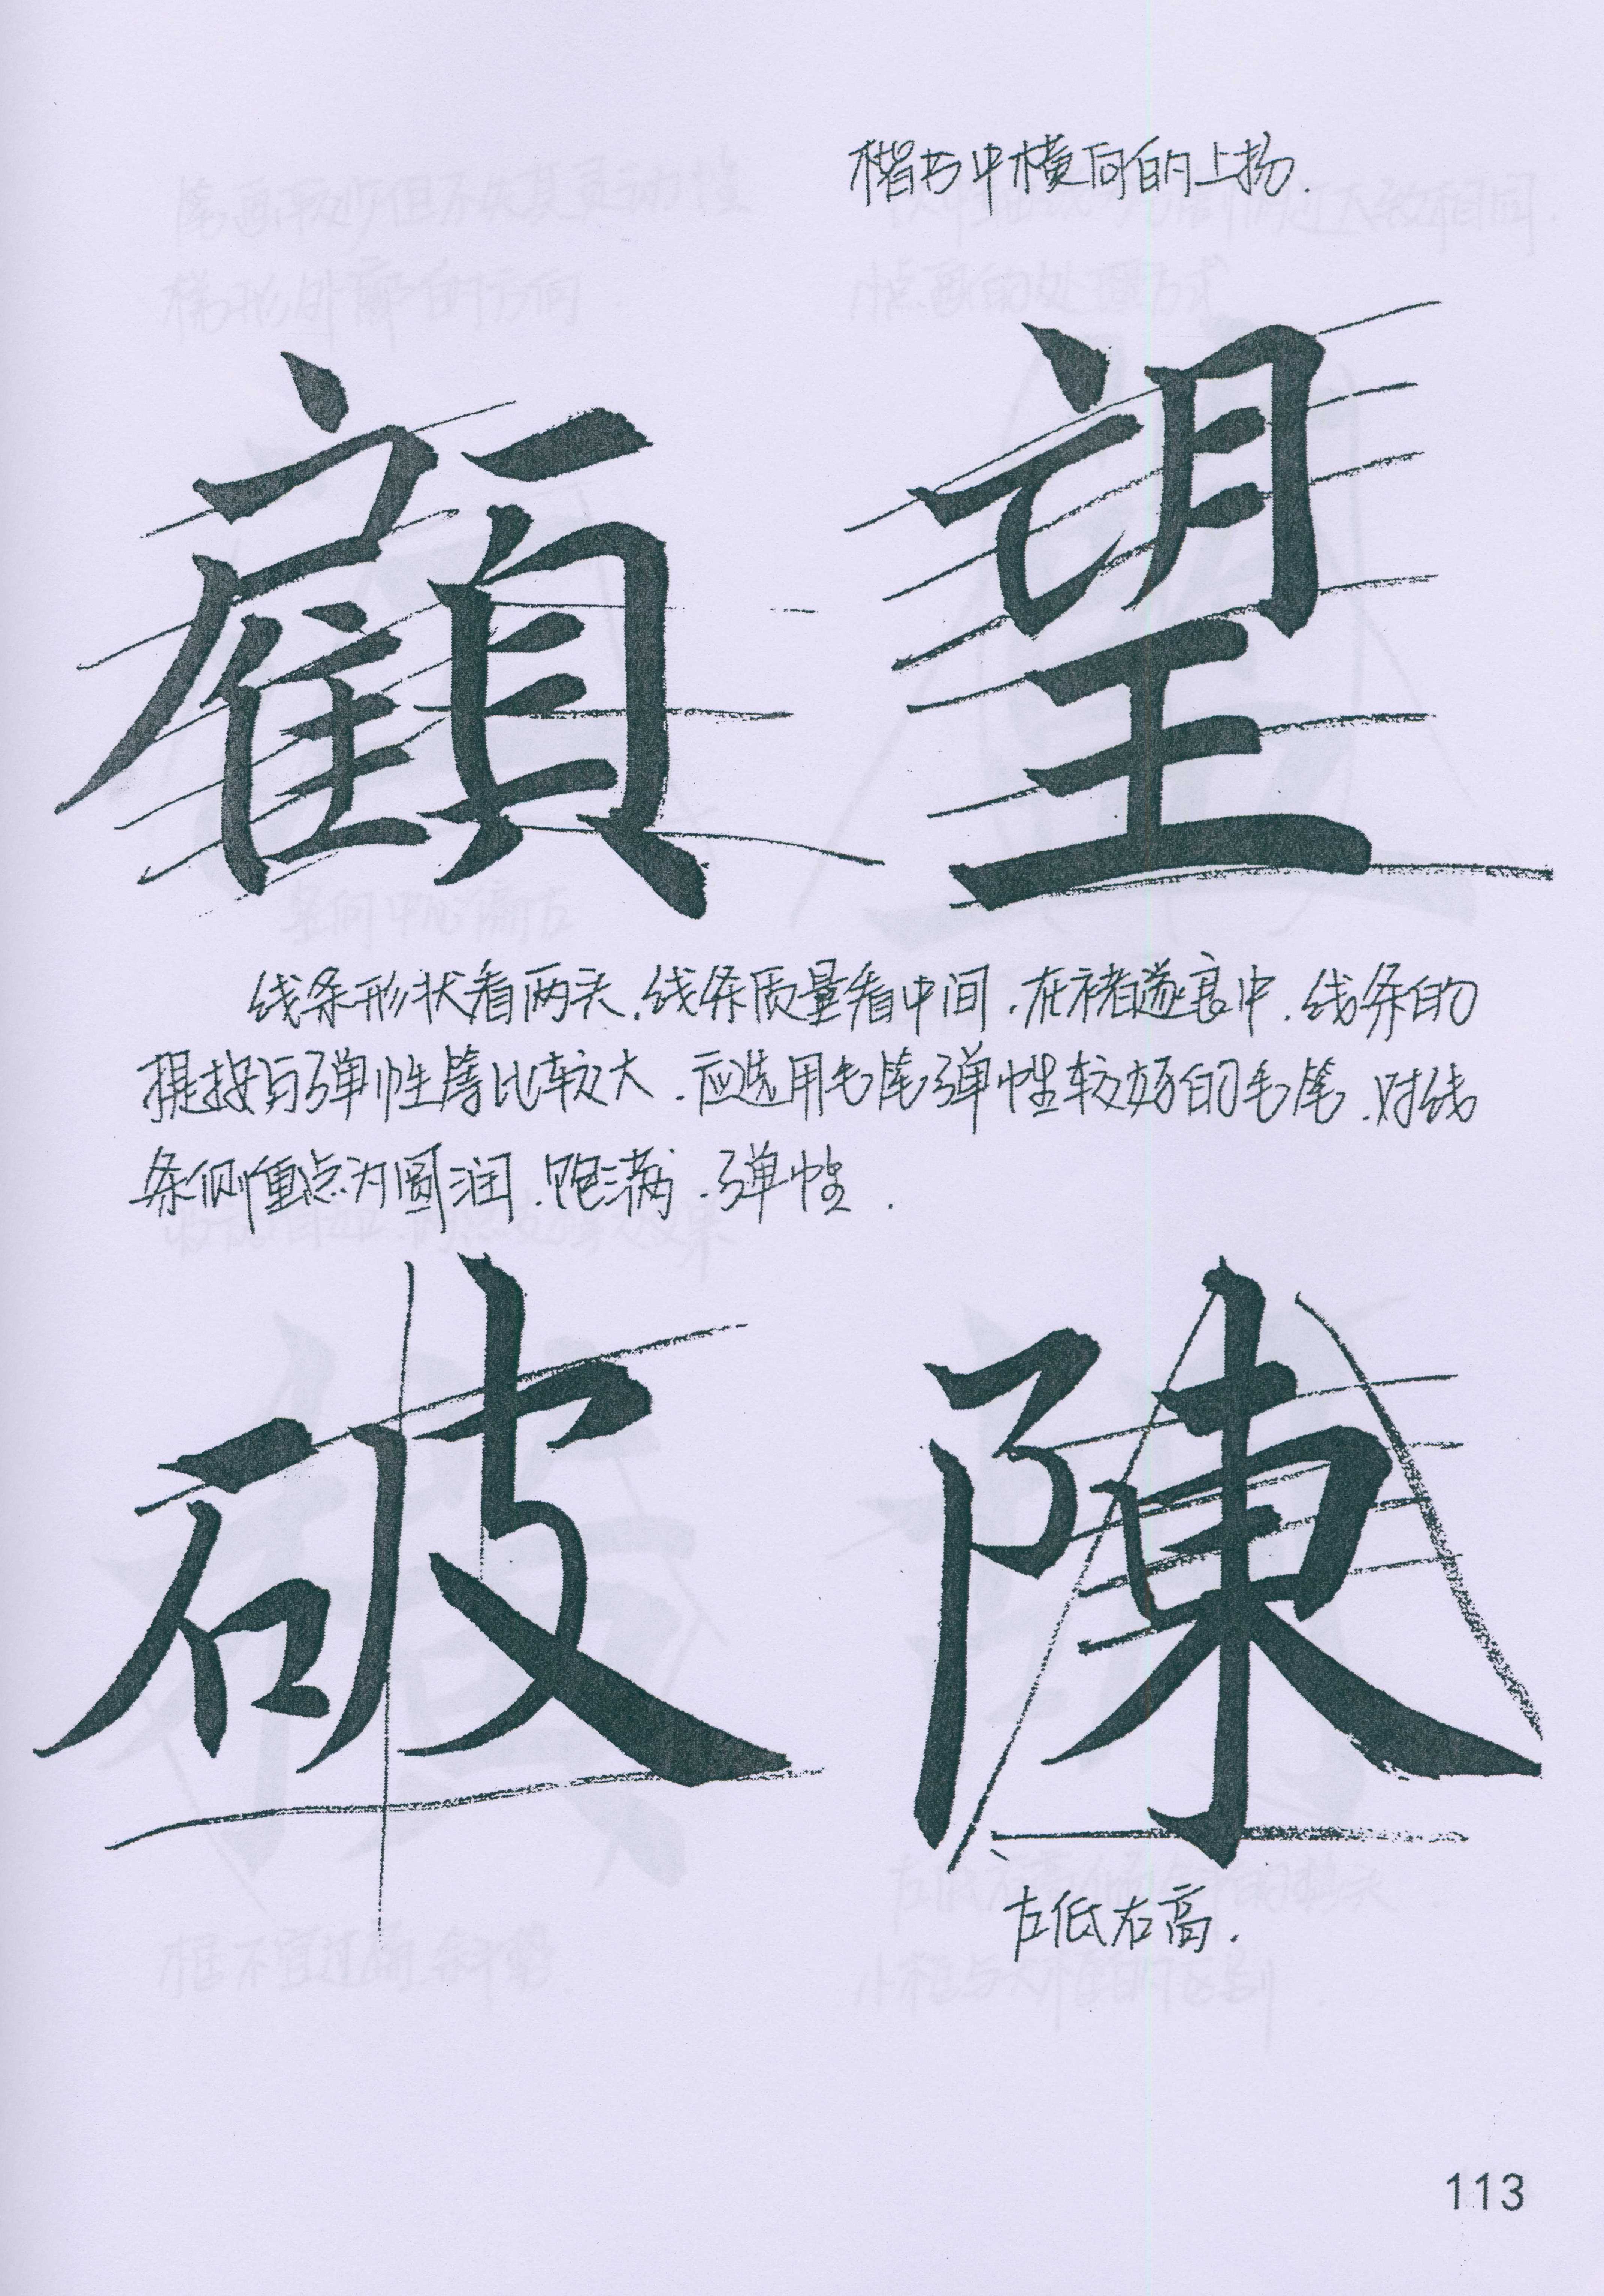 楷书中横向的上扬.
顧 望
线条形状看两头.线条质量看中间.在褚遂良中.线条的
提按与弹性等比较大.应选用毛笔弹性较好的毛笔.对线
条侧重点为圆润.饱满.弹性.
破 陳
左低右高.
113